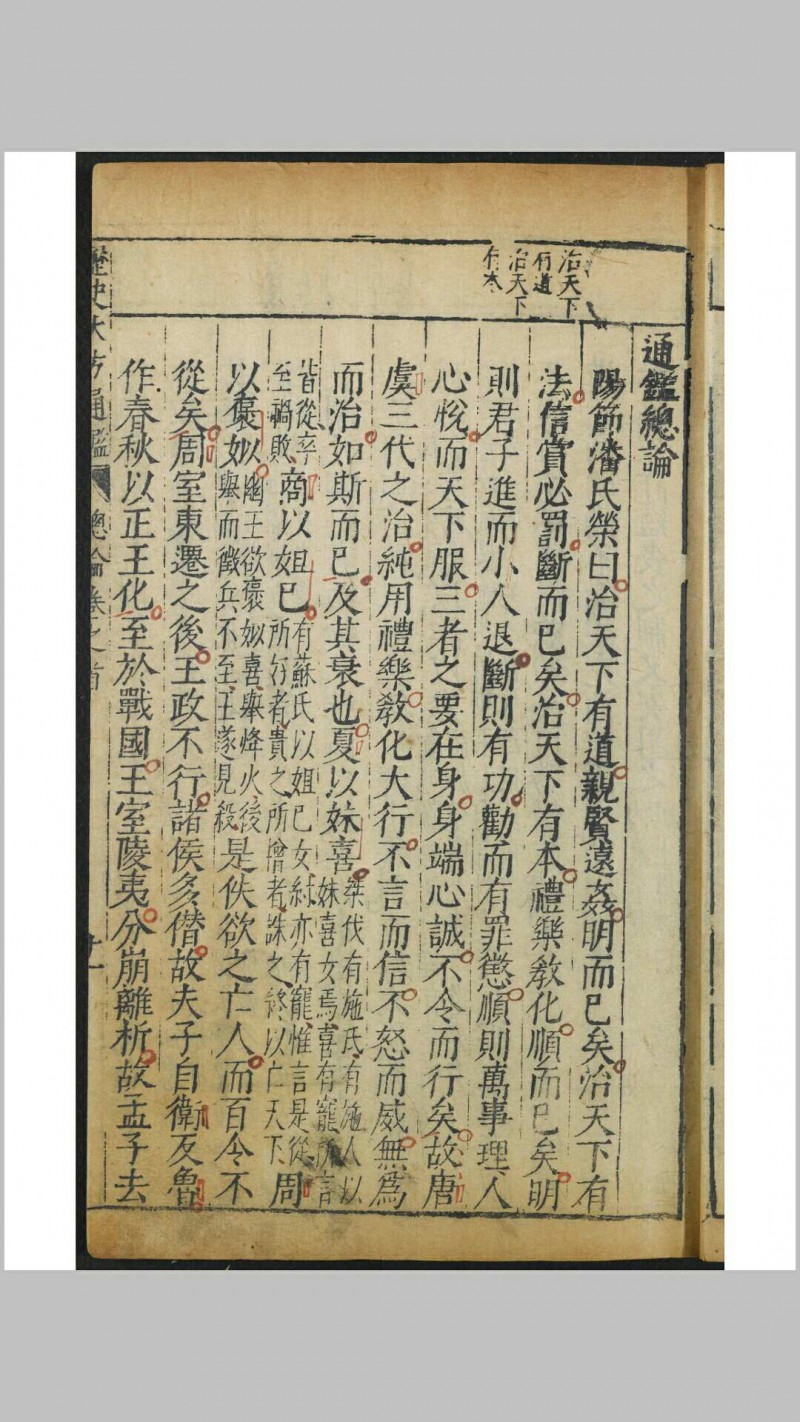 治天下
有道
治天下
有本
通鑑總論
陽節潘氏榮曰治天下有道親賢遠姦明而已矣治天下有
法信賞必罰斷而已矣治天下有本禮樂教化順而已矣明
則君子進而小人退斷則有功勸而有罪懲順則萬事理人
心悅而天下服三者之要在身身端心誠不令而行矣故唐
虞三代之治純用禮樂教化大行不言而信不怒而威無為
而治如斯而已及其衰也夏以妹喜桀伐有施氏有施人以
妹喜女焉喜有寵所言
皆從卒
至禍敗商以妲已有蘇氏以妲已女紂亦有寵惟言是從
所好者貴之所憎者誅之終以亡天下周
以褒姒幽王欲褒姒喜舉烽火後
舉而徵兵不至王遂見殺是佚欲之亡人而百令不
從矣周室東遷之後王政不行諸侯多僣故夫子自衛反魯
作春秋以正王化至於戰國王室陵夷分崩離析故孟子去
歷史大方通鑑 總論卷之首